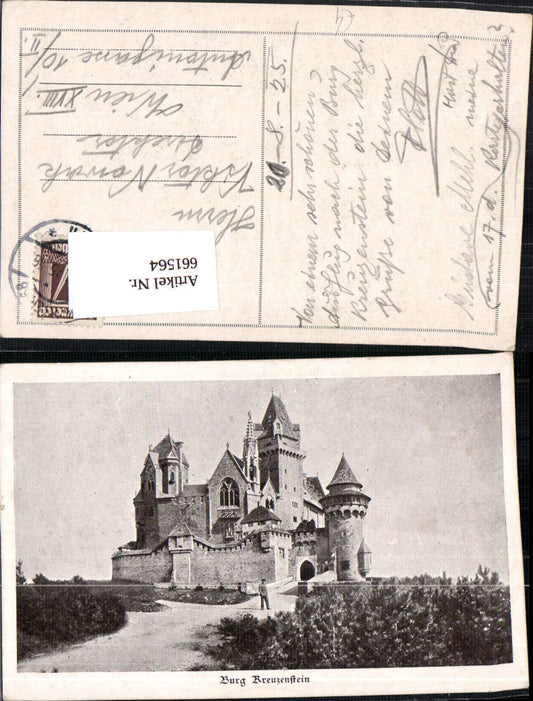 Herrn
Viktor Nowak
Direktor
Wien XVIII.
Antonigasse 10/II.
20.-8.-25.
Von einem sehr schönen
Ausflug nach der Burg
Kreuzenstein die herzl.
Grüße von Deinem
meine
vom 17. d.
Artikel Nr.
661564
Burg Kreuzenstein